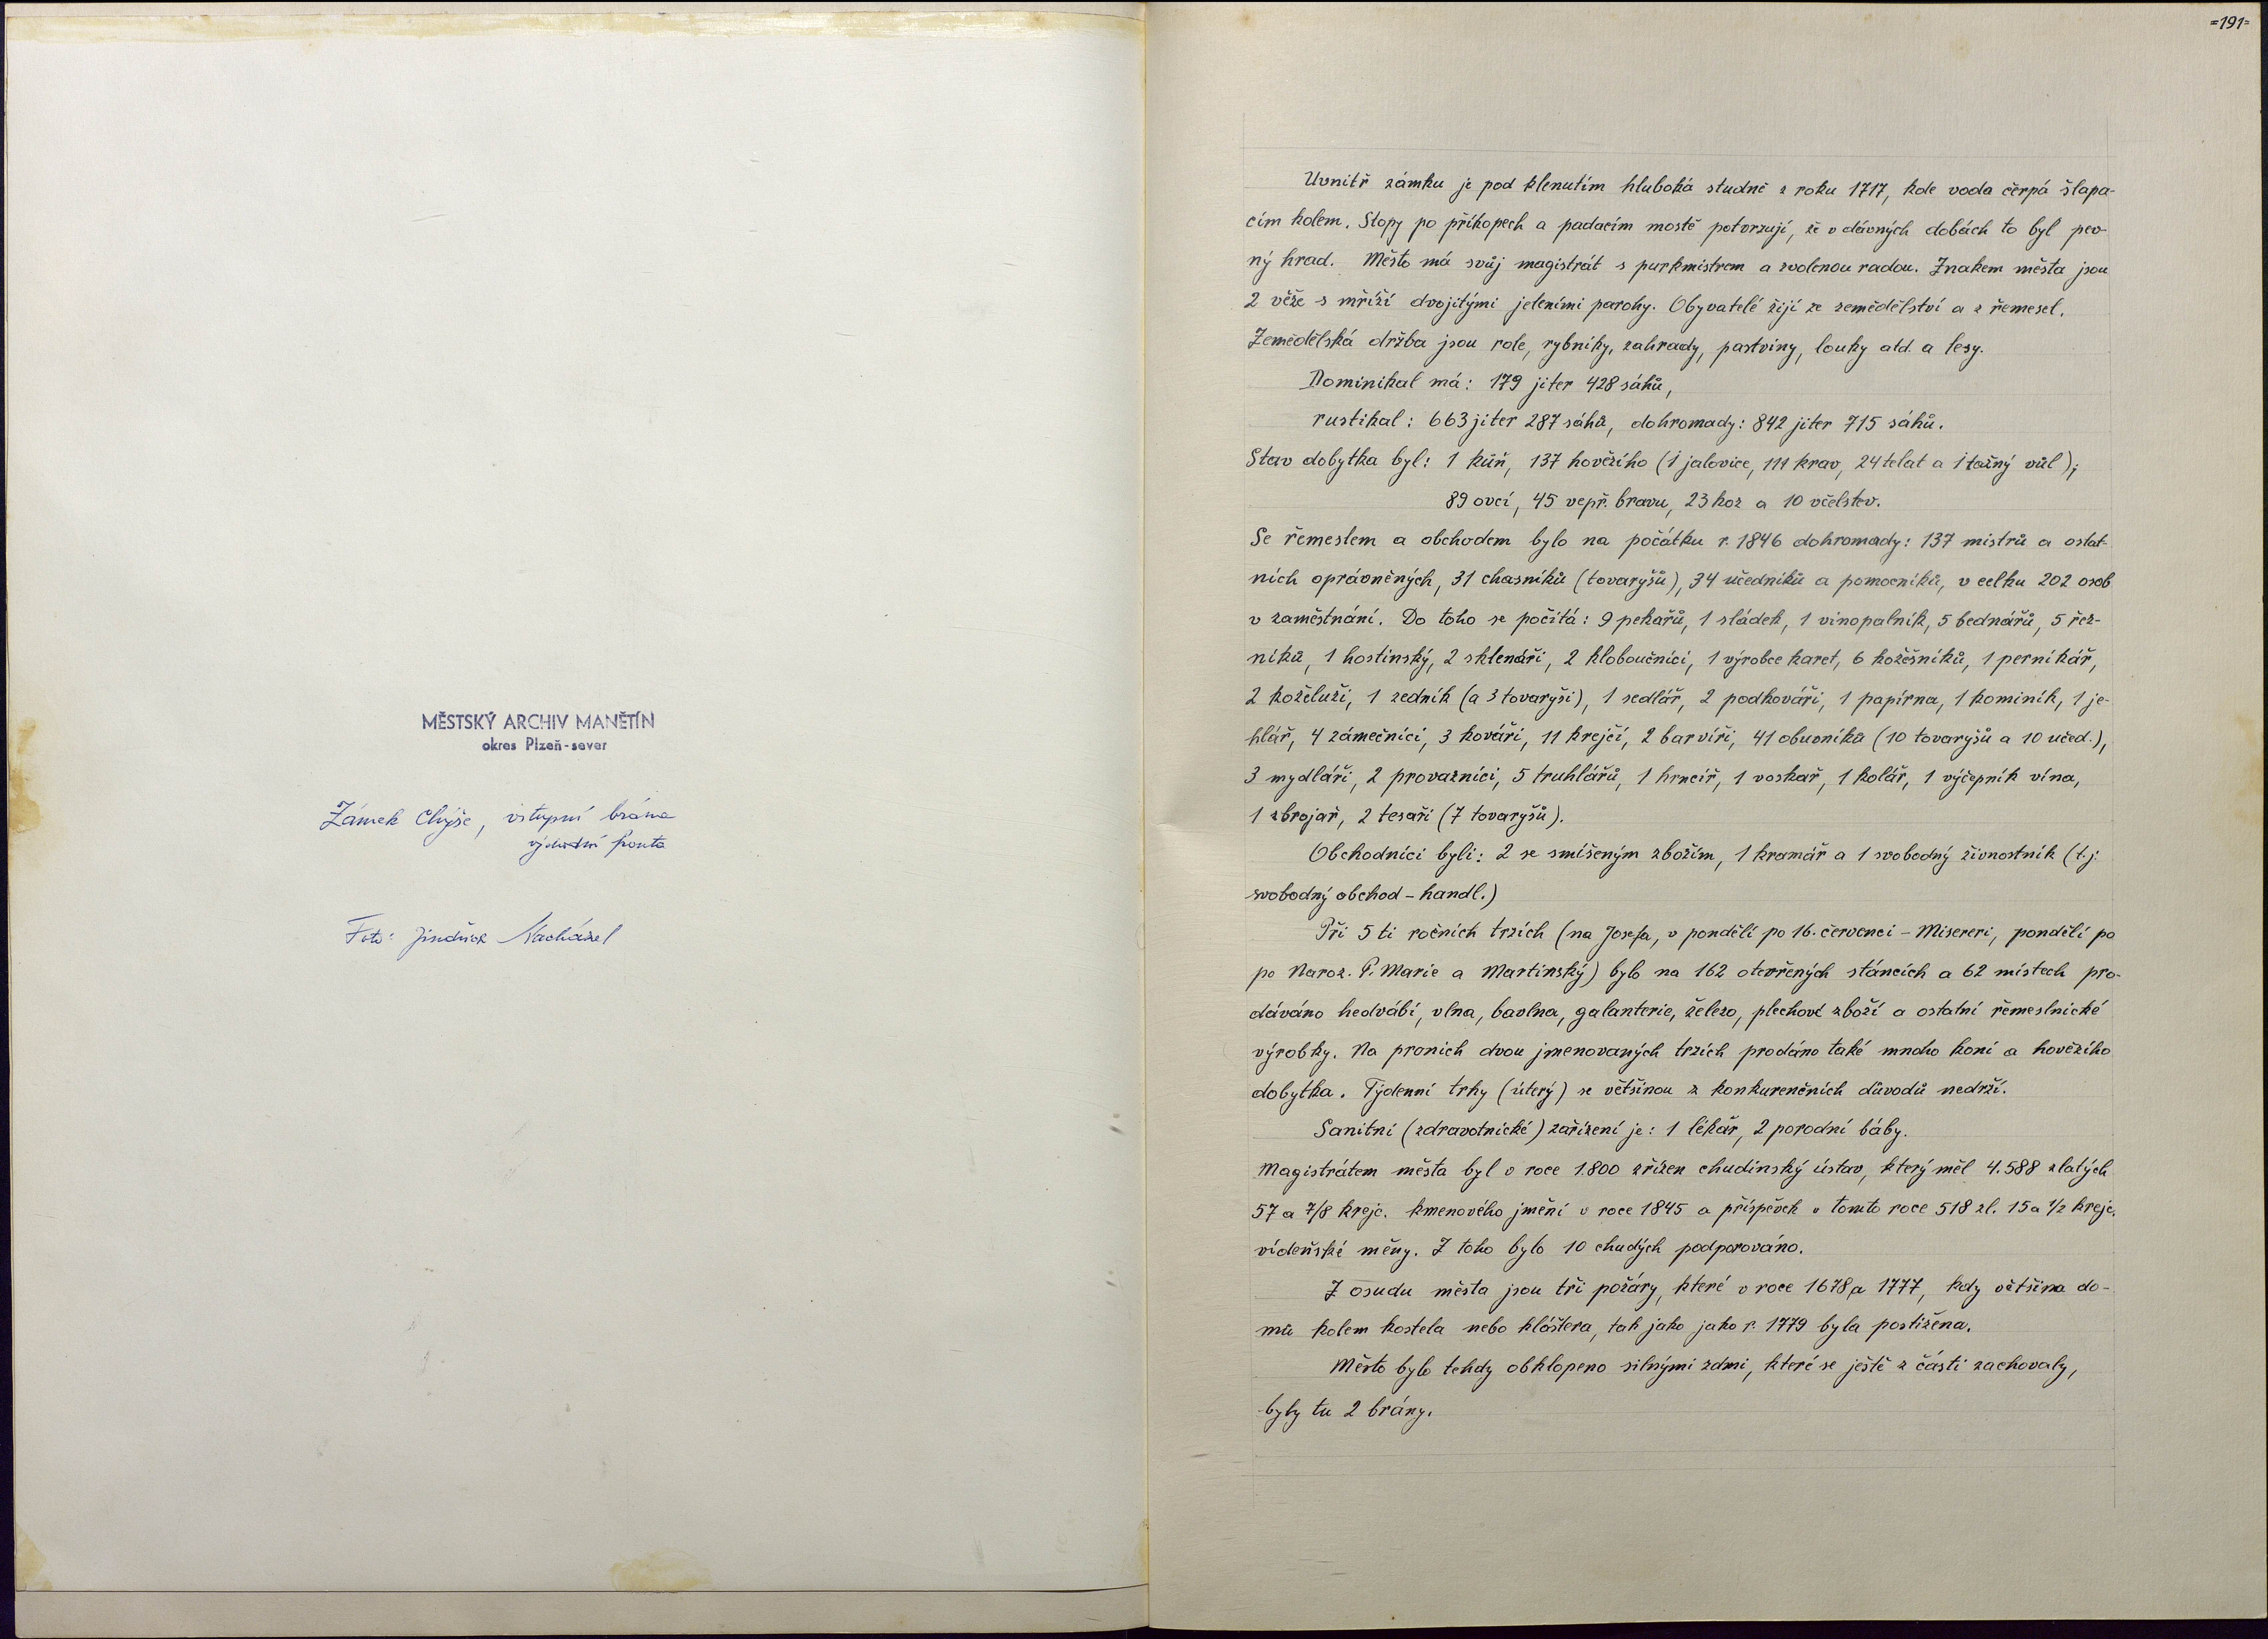 MĚSTSKÝ ARCHIV MANĚTÍN
okres Plzeň-sever
Zámek Chyše, vstupní brána
východní fronta
Foto: Jindřich Nacházel
=191=
Uvnitř zámku je pod klenutím hluboká studně z roku 1717, kde voda čerpá šlapa-
cím kolem. Stopy po příkopech a padacím mostě potvrzují, že v dávných dobách to byl pev-
ný hrad. Město má svůj magistrát s purkmistrem a zvolenou radou. Znakem města jsou
2 věže s mříží dvojitými jeleními parohy. Obyvatelé žijí ze zemědělství a z řemesel.
Zemědělská držba jsou role, rybníky, zahrady, pastviny, louky atd. a lesy.
Dominikal má: 179 jiter 428 sáhů,
rustikal: 663 jiter 287 sáhů, dohromady: 842 jiter 715 sáhů.
Stav dobytka byl: 1 kůň, 137 hovězího (1 jalovice, 111 krav, 24 telat a 1 tažný vůl);
89 ovcí, 45 vepř. bravu, 23 koz a 10 včelstev.
Se řemeslem a obchodem bylo na počátku r. 1846 dohromady: 137 mistrů a ostat-
ních oprávněných, 31 chasníků (tovaryšů), 34 učedníků a pomocníků, v celku 202 osob
v zaměstnání. Do toho se počítá: 9 pekařů, 1 sládek, 1 vinopalník, 5 bednářů, 5 řez-
níků, 1 hostinský, 2 sklenáři, 2 kloboučníci, 1 výrobce karet, 6 kožešníků, 1 perníkář,
2 koželuži, 1 zedník (a 3 tovaryši), 1 sedlář, 2 podkováři, 1 papírna, 1 kominík, 1 je-
hlář, 4 zámečníci, 3 kováři, 11 krejčí, 2 barvíři, 41 obuvníků (10 tovaryšů a 10 učed.),
3 mydláři, 2 provazníci, 5 truhlářů, 1 hrnčíř, 1 voskař, 1 kolář, 1 výčepník vína,
1 zbrojař, 2 tesaři (7 tovaryšů).
Obchodníci byli: 2 se smíšeným zbožím, 1 kramář a 1 svobodný živnostník (t.j.
svobodný obchod - handl.)
Při 5 ti ročních trzích (na Josefa, v pondělí po 16. červenci - Misereri, pondělí po
po Naroz. P. Marie a Martinský) bylo na 162 otevřených stáncích a 62 místech pro-
dáváno hedvábí, vlna, bavlna, galanterie, železo, plechové zboží a ostatní řemeslnické
výrobky. Na prvních dvou jmenovaných trzích prodáno také mnoho koní a hovězího
dobytka. Týdenní trhy (úterý) se většinou z konkurenčních důvodů nedrží.
Sanitní (zdravotnické) zařízení je: 1 lékář, 2 porodní báby.
Magistrátem města byl v roce 1.800 zřízen chudinský ústav, který měl 4.588 zlatých
57 a 7/8 krejc. kmenového jmění v roce 1845 a příspěvek v tomto roce 518 zl. 15 a 1/2 krejc.
vídeňské měny. Z toho bylo 10 chudých podporováno.
Z osudu města jsou tři požáry, které v roce 1678 a 1777, kdy většina do-
mů kolem kostela nebo kláštera, tak jako jako r. 1779 byla postižena.
Město bylo tehdy obklopeno silnými zdmi, které se ještě z části zachovaly,
byly tu 2 brány.